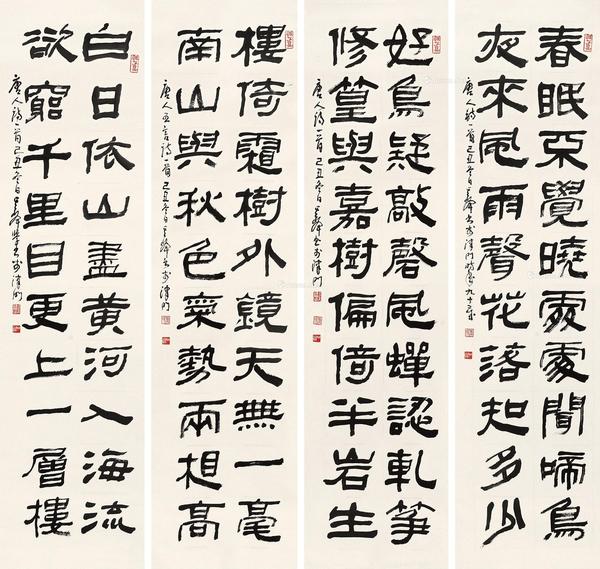 春眠不覺曉處處聞啼鳥
夜來風雨聲花落知多少
唐人詩一首己丑冬日
好鳥疑敲磬風蟬認軋箏
修篁與嘉樹偏倚半岩生
唐人詩一首己丑冬日
樓倚霜樹外鏡天無一毫
南山與秋色氣勢兩相高
唐人五言詩一首己丑冬日
白日依山盡黃河入海流
欲窮千里目更上一層樓
唐人詩一首己丑冬日